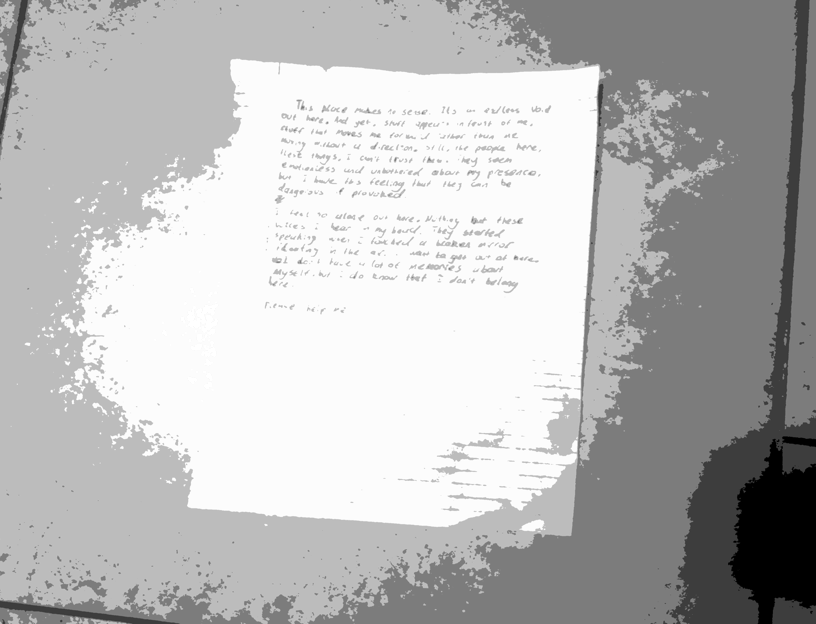 This place makes no sense. It's an endless void
out here. And yet, stuff appears in front of me,
stuff that moves me forward rather than me
moving without a direction. Still, the people here,
these things, i can't trust them. They seem
emotionless and unbothered about my presence,
but i have this feeling that they can be
dangerous if provoked
i feel so alone out here. Nothing but these
voices i hear in my head. They started
speaking when i touched a broken mirror
floating in the air. i want to get out of here.
i don't have a lot of memories about
myself, but i do know that i don't belong
here.
Please help me